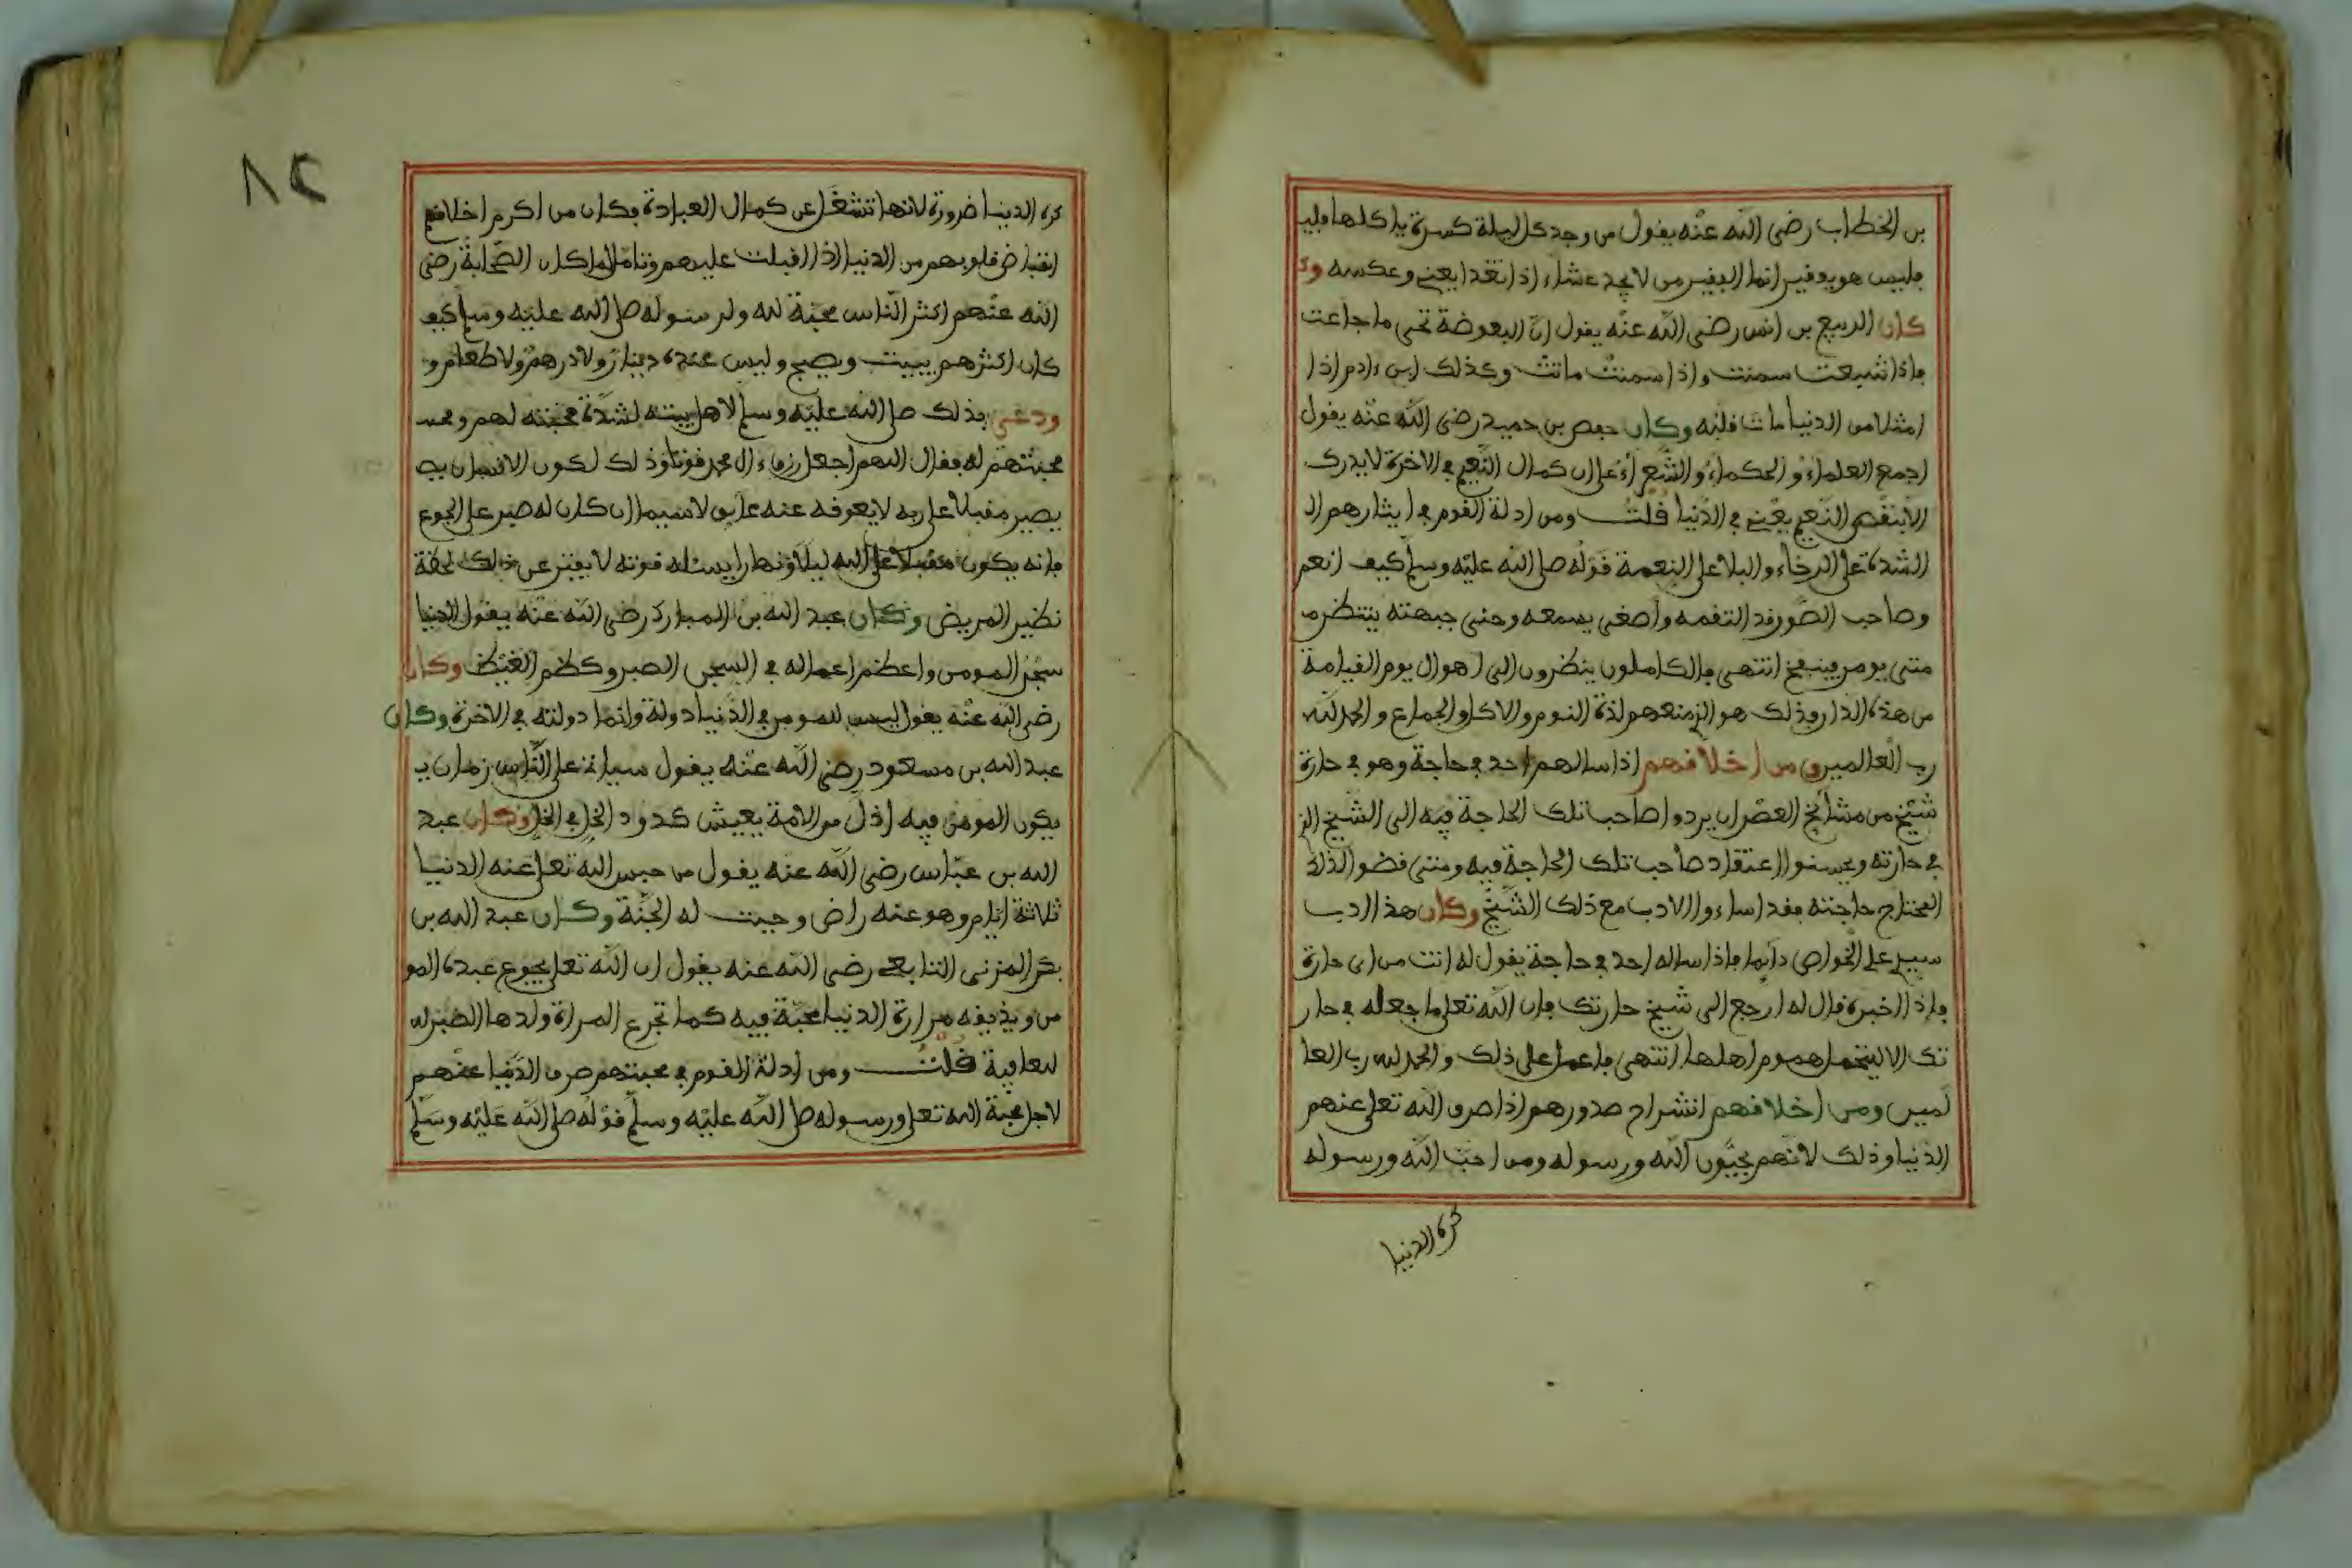 بن الخطاب رضي الله عنه يقول من وجد كل ليلة كسرة ياكلها فليـ
فليس هو بفقير انما الفقير من لا يجد عشاء اذا تغدا يعني وعكسه وكـ
كان الربيع بن انس رضي الله عنه يقول ان البعوضة تحيى ما جاعت
فاذا شبعت سمنت واذا سمنت ماتت وكذلك ابن ءادم اذا ا
امتلا من الدنيا مات قلبه وكان حفص بن حميد رضي الله عنه يقول
اجمع العلماء والحكماء والشعراء على ان كمال النعيم في الاخرة لا يدرك
الا بنقص النعيم يعني في الدنيا قلت ومن ادلة القوم في ايثارهم الـ
الشدة على الرخاء والبلا على النعمة قوله صلى الله عليه وسلم كيف انعم
وصاحب الصور قد التقمه واصغى بسمعه وحنى جبهته ينتظر مـ
متى يومر فينفخ انتهى فالكاملون ينظرون الى اهوال يوم القيامة
من هذه الدار وذلك هو الذي منعهم لذة النوم والاكل والجماع والحمد لله
رب العالمين ومن اخلاقهم اذا سالهم احد في حاجة وهو في حارة
شيخ من مشائخ العصر ان يردوا صاحب تلك الحاجة فيه الى الشيخ الذي
في حارته ويحسنوا اعتقاد صاحب تلك الحاجة فيه ومتى قضوا لذلك
المحتاج حاجته فقد اساءوا الادب مع ذلك الشيخ وكان هذا ادب
سيدي علي الخواص دائما فاذا ساله احد في حاجة يقول له انت من اي حارة
فاذا اخبره قال له ارجع الى شيخ حارتك فان الله تعلى ما جعله في حار
تك الا ليتحمل هموم اهلها انتهى فاعمل على ذلك والحمد لله رب العا
لمين ومن اخلاقهم انشراح صدورهم اذا صرف الله تعلى عنهم
الدنيا وذلك لانهم يحبون الله ورسوله ومن احب الله ورسوله
كره الدنيا
٨٢
كره الدنيا ضرورة لانها تشغل عن كمال العبادة فكان من اكرم اخلاقهم
انقباض قلوبهم من الدنيا اذا اقبلت عليهم وتامل لما كان الصحابة رضي
الله عنهم اكثر الناس محبة لله ولرسوله صلى الله عليه وسلم كيف
كان اكثرهم يبيت ويصبح وليس عنده دينار ولا درهم ولا طعام و
ودعى بذلك صلى الله عليه وسلم لاهل بيته لشدة محبته لهم و
محبتهم له فقال اللهم اجعل رزق ءال محمد قوتا وذلك لكون الانسان يصـ
يصير مقبلا على ربه لا يعوقه عنه عايق لا سيما ان كان له صبر على الجوع
فانه يكون مقبلا على الله ليلا ونهارا يسئله قوته لا يفتر عن ذلك لحظة
نظير المريض وكان عبد الله بن المبارك رضي الله عنه يقول الدنيا
سجن المومن واعظم اعماله في السجن الصبر وكظم الغيظ وكان
رضي الله عنه يقول ليس للمومن في الدنيا دولة وانما دولته في الاخرة وكان
عبد الله بن مسعود رضي الله عنه يقول سياتي على الناس زمان يـ
يكون المومن فيه اذل من الامة يعيش كدود الخل في الخل وكان عبد
الله بن عباس رضي الله عنه يقول من حبس الله تعلى عنه الدنيا
ثلاثة ايام وهو عنه راض وجبت له الجنة وكان عبد الله بن
بكر المزني التابعي رضي الله عنه يقول ان الله تعلى يجوع عبده المو
من ويذيقه مرارة الدنيا محبة فيه كما تجرع المراة ولدها الصبر للـ
لعافية قلت ومن ادلة القوم في محبتهم صرف الدنيا عنهم
لاجل محبة الله تعلى ورسوله صلى الله عليه وسلم قوله صلى الله عليه وسلم